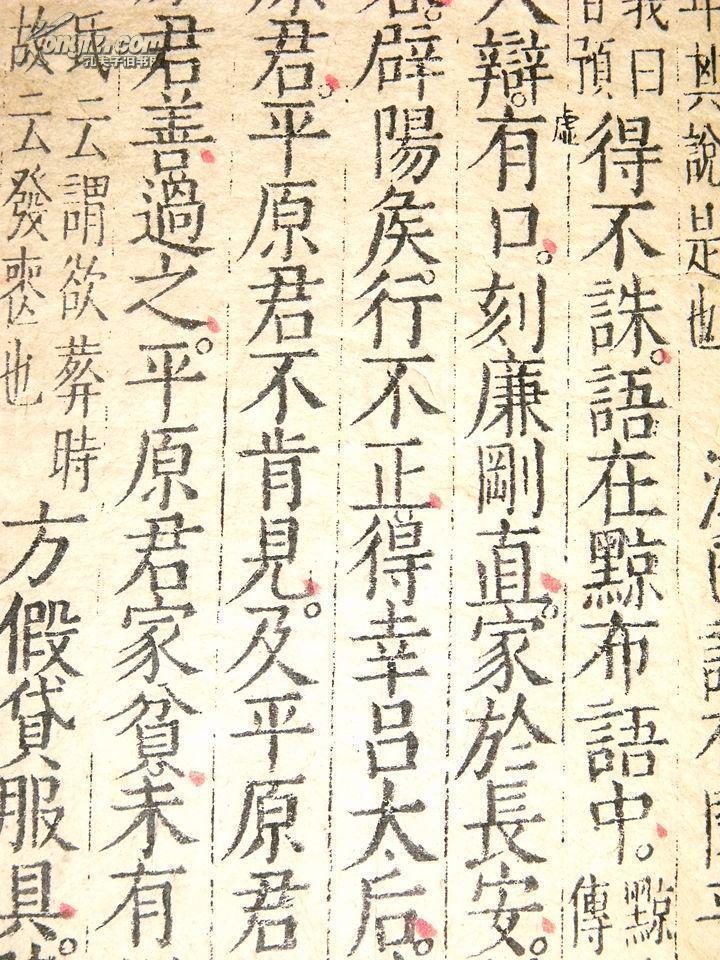 年與說是也
義曰
昔預
得不誅語在黥布語中
黥
傳
辯有口刻廉剛直家於長安
虛
辟陽矦行不正得幸呂太后
君平原君不肯見及平原君
君善過之平原君家貧未有
氏云謂欲葬時
故云發喪也
方假貸服具
孔夫子旧书网